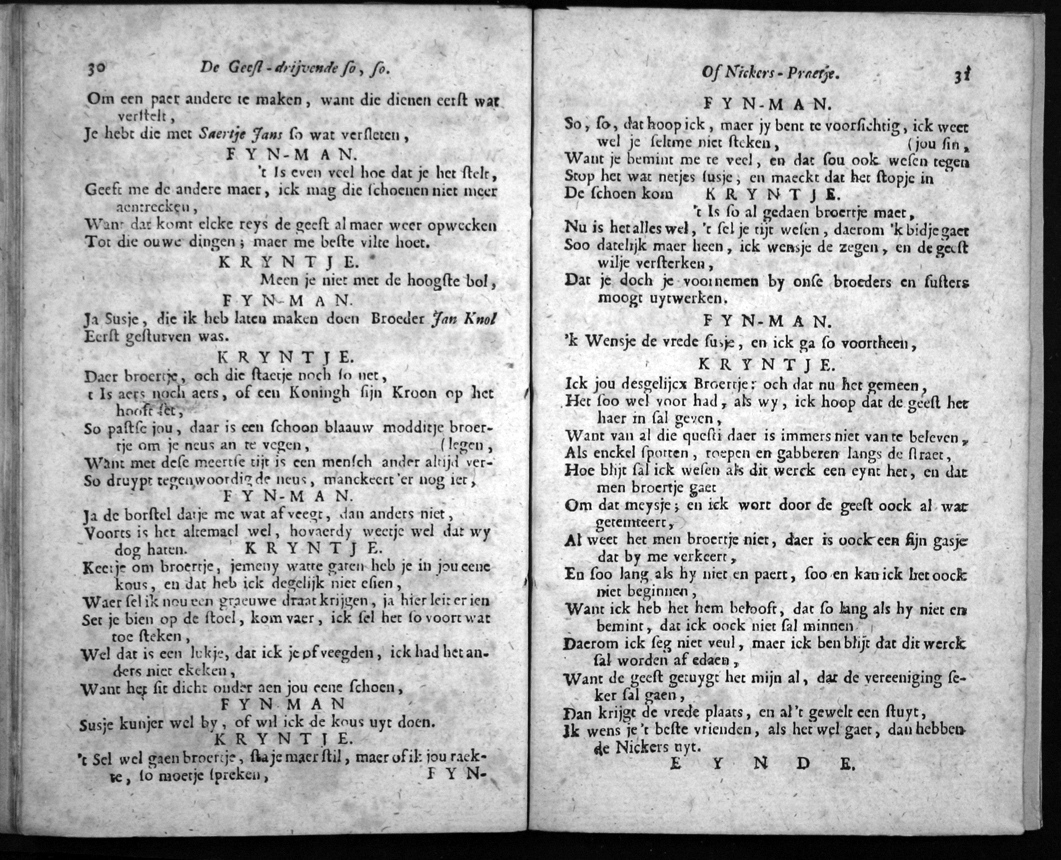 30 De Geeſt-drijvende ſo, ſo.
Om een paer andere te maken, want die dienen eerſt wat
verſtelt,
Je hebt die met Saertje Jans ſo wat verſleten,
FYN-MAN.
't Is even veel hoe dat je het ſtelt,
Geeft me de andere maer, ick mag die ſchoenen niet meer
aentrecken,
Want dat komt elcke reys de geeſt al maer weer opwecken
Tot die ouwe dingen; maer me beſte vilte hoet.
KRYNTJE.
Meen je niet met de hoogſte bol,
FYN-MAN.
Ja Susje, die ik heb laten maken doen Broeder Jan Knol
Eerſt geſturven was.
KRYNTJE.
Daer broertje, och die ſtaetje noch ſo net,
't Is aers noch aers, of een Koningh ſijn Kroon op het
hooft ſet,
So paſtſe jou, daar is een ſchoon blaauw modditje broer-
tje om je neus an te vegen, (legen,
Want met deſe meertſe tijt is een menſch ander altijd ver-
So druypt tegenwoordig de neus, manckeert'er nog iet,
FYN-MAN.
Ja de borſtel datje me wat afveegt, dan anders niet,
Voorts is het altemael wel, hovaerdy weetje wel dat wy
dog haten. KRYNTJE.
Keetje om broertje, jemeny watte gaten heb je in jou eene
kous, en dat heb ick degelijk niet eſien,
Waer ſel ik nou een graeuwe draat krijgen, ja hier leit er ien
Set je bien op de ſtoel, kom vaer, ick ſel het ſo voort wat
toe ſteken,
Wel dat is een lukje, dat ick je of veegden, ick had het an-
ders niet ekeken,
Want het ſit dicht onder aen jou eene ſchoen,
FYN-MAN
Susje kunjer wel by, of wil ick de kous uyt doen.
KRYNTJE.
't Sel wel gaen broertje, ſta je maer ſtil, maer of ik jou raek-
te, ſo moetje ſpreken, FYN-
Of Nickers-Praetje. 31
FYN-MAN.
So, ſo, dat hoop ick, maer jy bent te voorſichtig, ick weet
wel je ſeltme niet ſteken, (jou ſin,
Want je bemint me te veel, en dat ſou ook weſen tegen
Stop het wat netjes ſusje, en maeckt dat het ſtopje in
De ſchoen kom KRYNTJE.
't Is ſo al gedaen broertje maet,
Nu is het alles wel, 't ſel je tijt weſen, daerom 'k bidje gaet
Soo datelijk maer heen, ick wensje de zegen, en de geeſt
wilje verſterken,
Dat je doch je voornemen by onſe broeders en ſuſters
moogt uytwerken.
FYN-MAN.
'k Wensje de vrede ſusje, en ick ga ſo voortheen,
KRYNTJE.
Ick jou desgelijcx Broertje: och dat nu het gemeen,
Het ſoo wel voor had, als wy, ick hoop dat de geeſt het
haer in ſal geven,
Want van al die queſti daer is immers niet van te beleven,
Als enckel ſpotten, roepen en gabberen langs de ſtraet,
Hoe blijt ſal ick weſen als dit werck een eynt het, en dat
men broertje gaet
Om dat meysje; en ick wort door de geeſt oock al wat
getemteert,
Al weet het men broertje niet, daer is oock een fijn gasje
dat by me verkeert,
En ſoo lang als hy niet en paert, ſoo en kan ick het oock
niet beginnen,
Want ick heb het hem belooft, dat ſo lang als hy niet en
bemint, dat ick oock niet ſal minnen
Daerom ick ſeg niet veul, maer ick ben blijt dat dit werck
ſal worden af edaen,
Want de geeſt getuygt het mijn al, dat de vereeniging ſe-
ker ſal gaen,
Dan krijgt de vrede plaats, en al't gewelt een ſtuyt,
Ik wens je 't beſte vrienden, als het wel gaet, dan hebben
de Nickers uyt.
EYNDE.